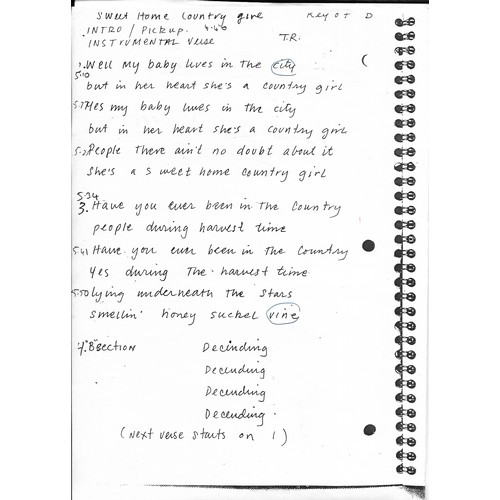 Sweet Home Country girl Key of D
INTRO / PICKUP. 4.46
INSTRUMENTAL Verse T.R.
Well my baby lives in the city
5.10
but in her heart she's a country girl
Yes my baby lives in the city
but in her heart she's a country girl
People There ain't no doubt about it
She's a Sweet home country girl
5.34
3. Have you ever been in the Country
people during harvest time
5.41 Have you ever been in the Country
Yes during The harvest time
5.50 lying underneath the stars
smellin' honey suckel vine
4. B section Decending
Decending
Decending
Decending
(Next verse starts on 1)